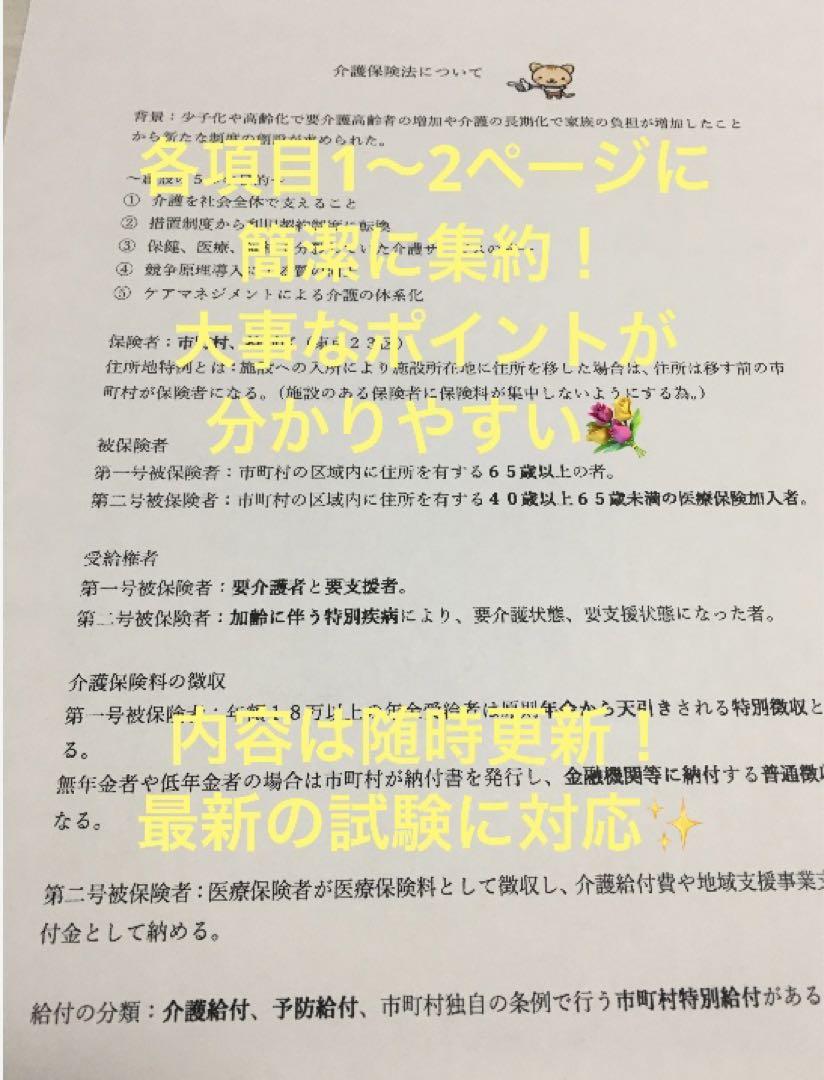 介護保険法について
背景：少子化や高齢化で要介護高齢者の増加や介護の長期化で家族の負担が増加したこと
から新たな制度の創設が求められた。
各項目1〜2ページに
① 介護を社会全体で支えること
② 措置制度から利用契約制度に転換
簡潔に集約！
③ 保健、医療、
④ 競争原理導入
⑤ ケアマネジメントによる介護の体系化
大事なポイントが
保険者：市町村、
住所地特例とは：施設への入所により施設所在地に住所を移した場合は、住所は移す前の市
町村が保険者になる。（施設のある保険者に保険料が集中しないようにする為。）
分かりやすい
被保険者
第一号被保険者：市町村の区域内に住所を有する６５歳以上の者。
第二号被保険者：市町村の区域内に住所を有する４０歳以上６５歳未満の医療保険加入者。
受給権者
第一号被保険者：要介護者と要支援者。
第二号被保険者：加齢に伴う特別疾病により、要介護状態、要支援状態になった者。
介護保険料の徴収
第一号被保険者：年額１８万以上の年金受給者は原則年金から天引きされる特別徴収と
る。
内容は随時更新！
無年金者や低年金者の場合は市町村が納付書を発行し、金融機関等に納付する普通徴収
なる。
最新の試験に対応✨
第二号被保険者：医療保険者が医療保険料として徴収し、介護給付費や地域支援事業支
付金として納める。
給付の分類：介護給付、予防給付、市町村独自の条例で行う市町村特別給付がある